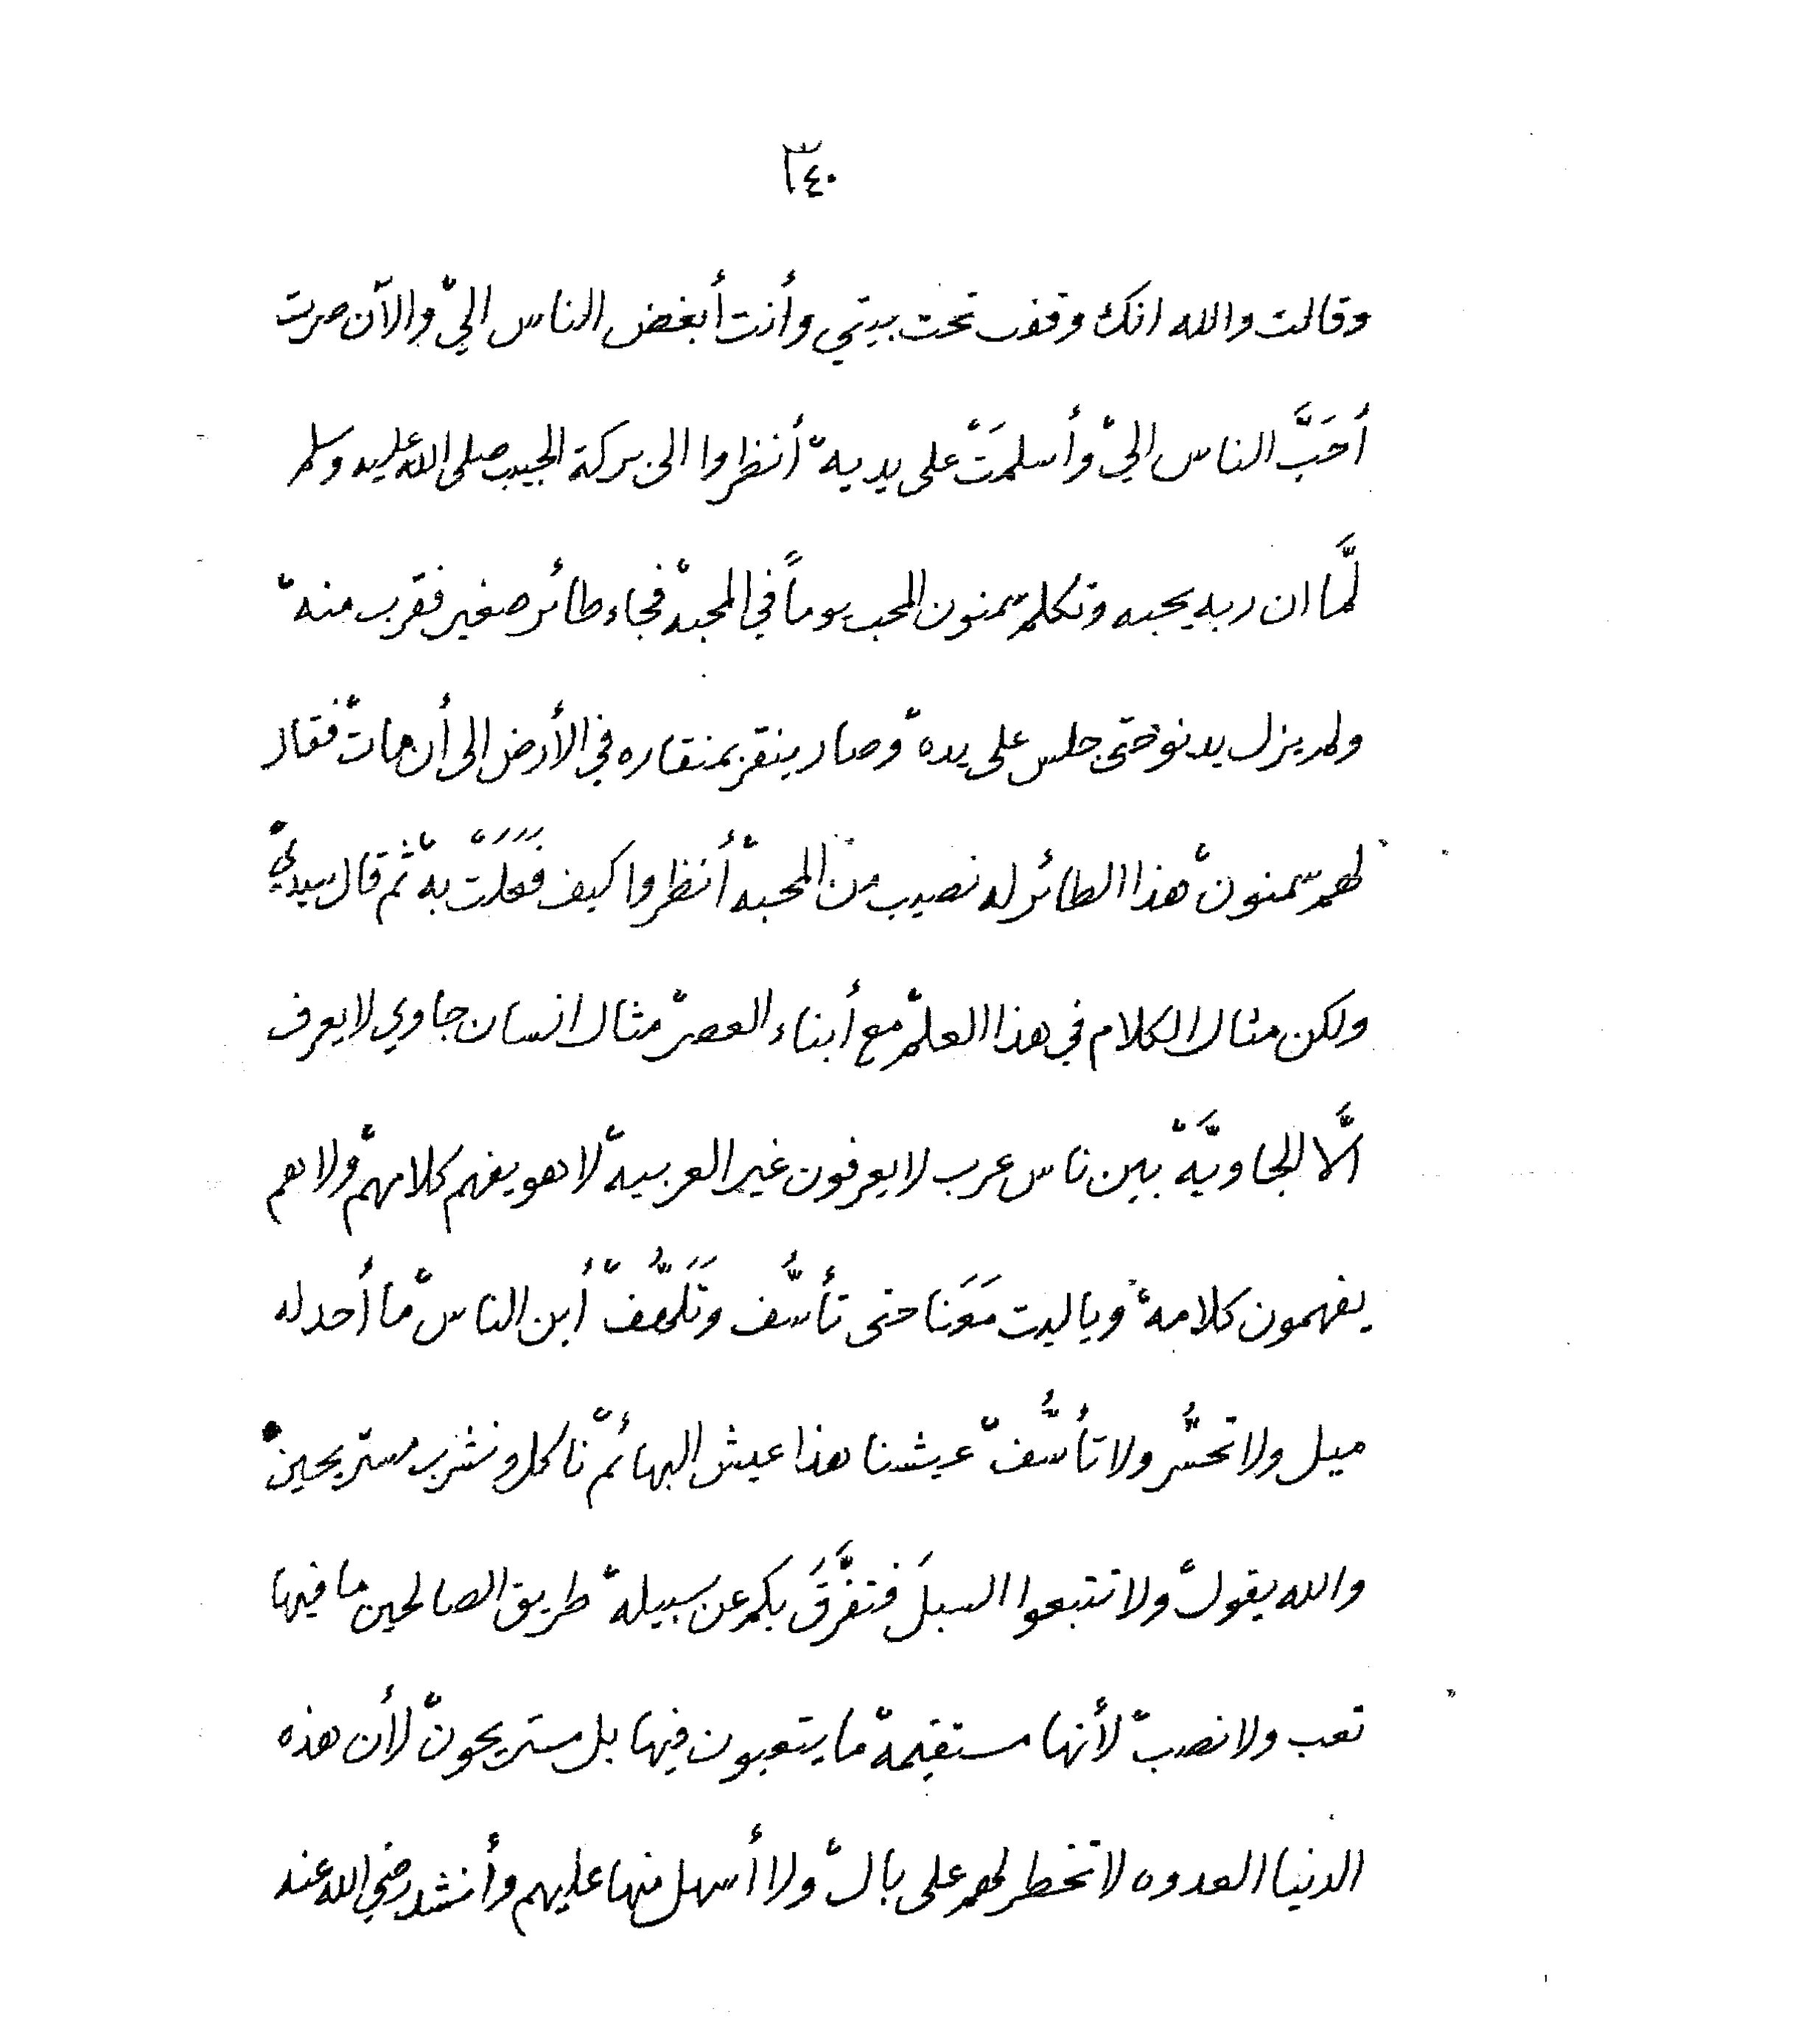 ٣٤٠
وقالت والله انك وقفت تحت بيتي وأنت أبغض الناس اليّ والآن صرت
أحَبَّ الناس اليّ وأسلمَتْ على يديه أنظروا الى بركة الحبيب صلى الله عليه وسلم
لمَّا ان ربه يحبه وتكلم سمنون المحب يوماً في المحبه فجاء طائر صغير فقرب منه
ولم يزل يدنو حتى جلس على يده وصار ينقر بمنقاره في الأرض الى أن مات فقال
لهم سمنون هذا الطائر له نصيب من المحبه أنظروا كيف فَعَلَتْ به ثم قال سيدي
ولكن مثال الكلام في هذا العلم مع أبناء العصر مثال انسان جاوي لا يعرف
الَّا الجاويَّه بين ناس عرب لا يعرفون غير العربيه لا هو يفهم كلامهم ولا هم
يفهمون كلامه وياليت مَعَنا حتى تأسُّف وتَلَهُّف أين الناس ما أحد له
ميل ولا تحسُّر ولا تأسُّف عيشنا هذا عيش البهائم ناكل ونشرب مستريحين
والله يقول ولا تتبعوا السبلَ فتفَرَّقَ بكم عن سبيله طريق الصالحين ما فيها
تعب ولا نصب لأنها مستقيمة ما يتعبون فيها بل مستريحون لأن هذه
الدنيا العدوه لا تخطر لهم على بال ولا أسهل منها عليهم وأنشد رضي الله عنه